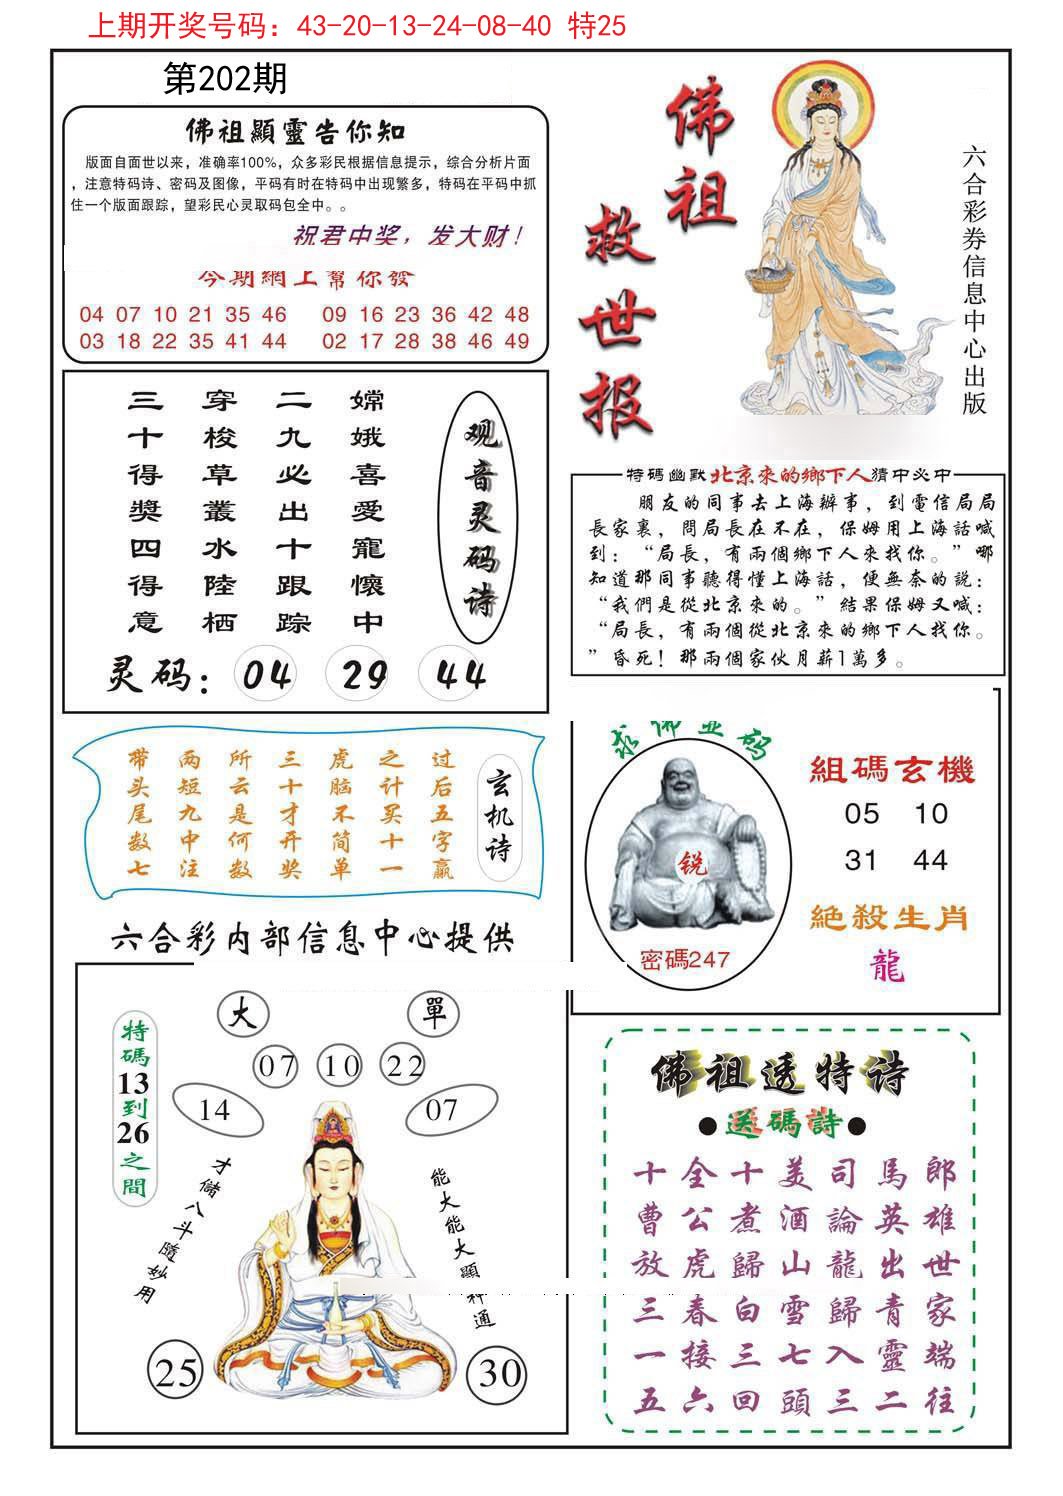 上期开奖号码：43-20-13-24-08-40 特25
第202期
佛祖顯靈告你知
版面自面世以来，准确率100%，众多彩民根据信息提示，综合分析片面
，注意特码诗、密码及图像，平码有时在特码中出现繁多，特码在平码中抓
住一个版面跟踪，望彩民心灵取码包全中。。
祝君中奖，发大财！
今期網上幫你發
04 07 10 21 35 46 09 16 23 36 42 48
03 18 22 35 41 44 02 17 28 38 46 49
佛祖
救世报
六合彩券信息中心出版
观音灵码诗
嫦娥喜愛寵懷中
二九必出十跟踪
穿梭草叢水陸栖
三十得獎四得意
灵码：04 29 44
特碼幽默北京來的鄉下人猜中必中
朋友的同事去上海辦事，到電信局局
長家裏，問局長在不在，保姆用上海話喊
到：“局長，有兩個鄉下人來找你。”哪
知道那同事聽得懂上海話，便無奈的説：
“我們是從北京來的。”結果保姆又喊：
“局長，有兩個從北京來的鄉下人找你。
”昏死！那兩個家伙月薪1萬多。
玄机诗
过后五字赢
之计买十一
虎脑不简单
三十才开奖
所云是何数
两短九中注
带头尾数七
求佛显码
锐
密碼247
組碼玄機
05 10
31 44
絕殺生肖
龍
六合彩内部信息中心提供
特碼13到26之間
大 單
07 10 22
14 07
才儲八斗隨妙用
能大能大顯神通
25 30
佛祖透特诗
●送碼詩●
十全十美司馬郎
曹公煮酒論英雄
放虎歸山龍出世
三春白雪歸青家
一接三七入靈端
五六回頭三二往